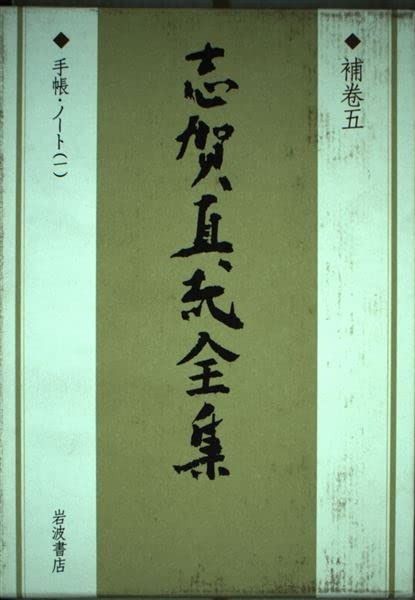 ◆補巻五
志賀直哉全集
◆手帳・ノート(一)
岩波書店